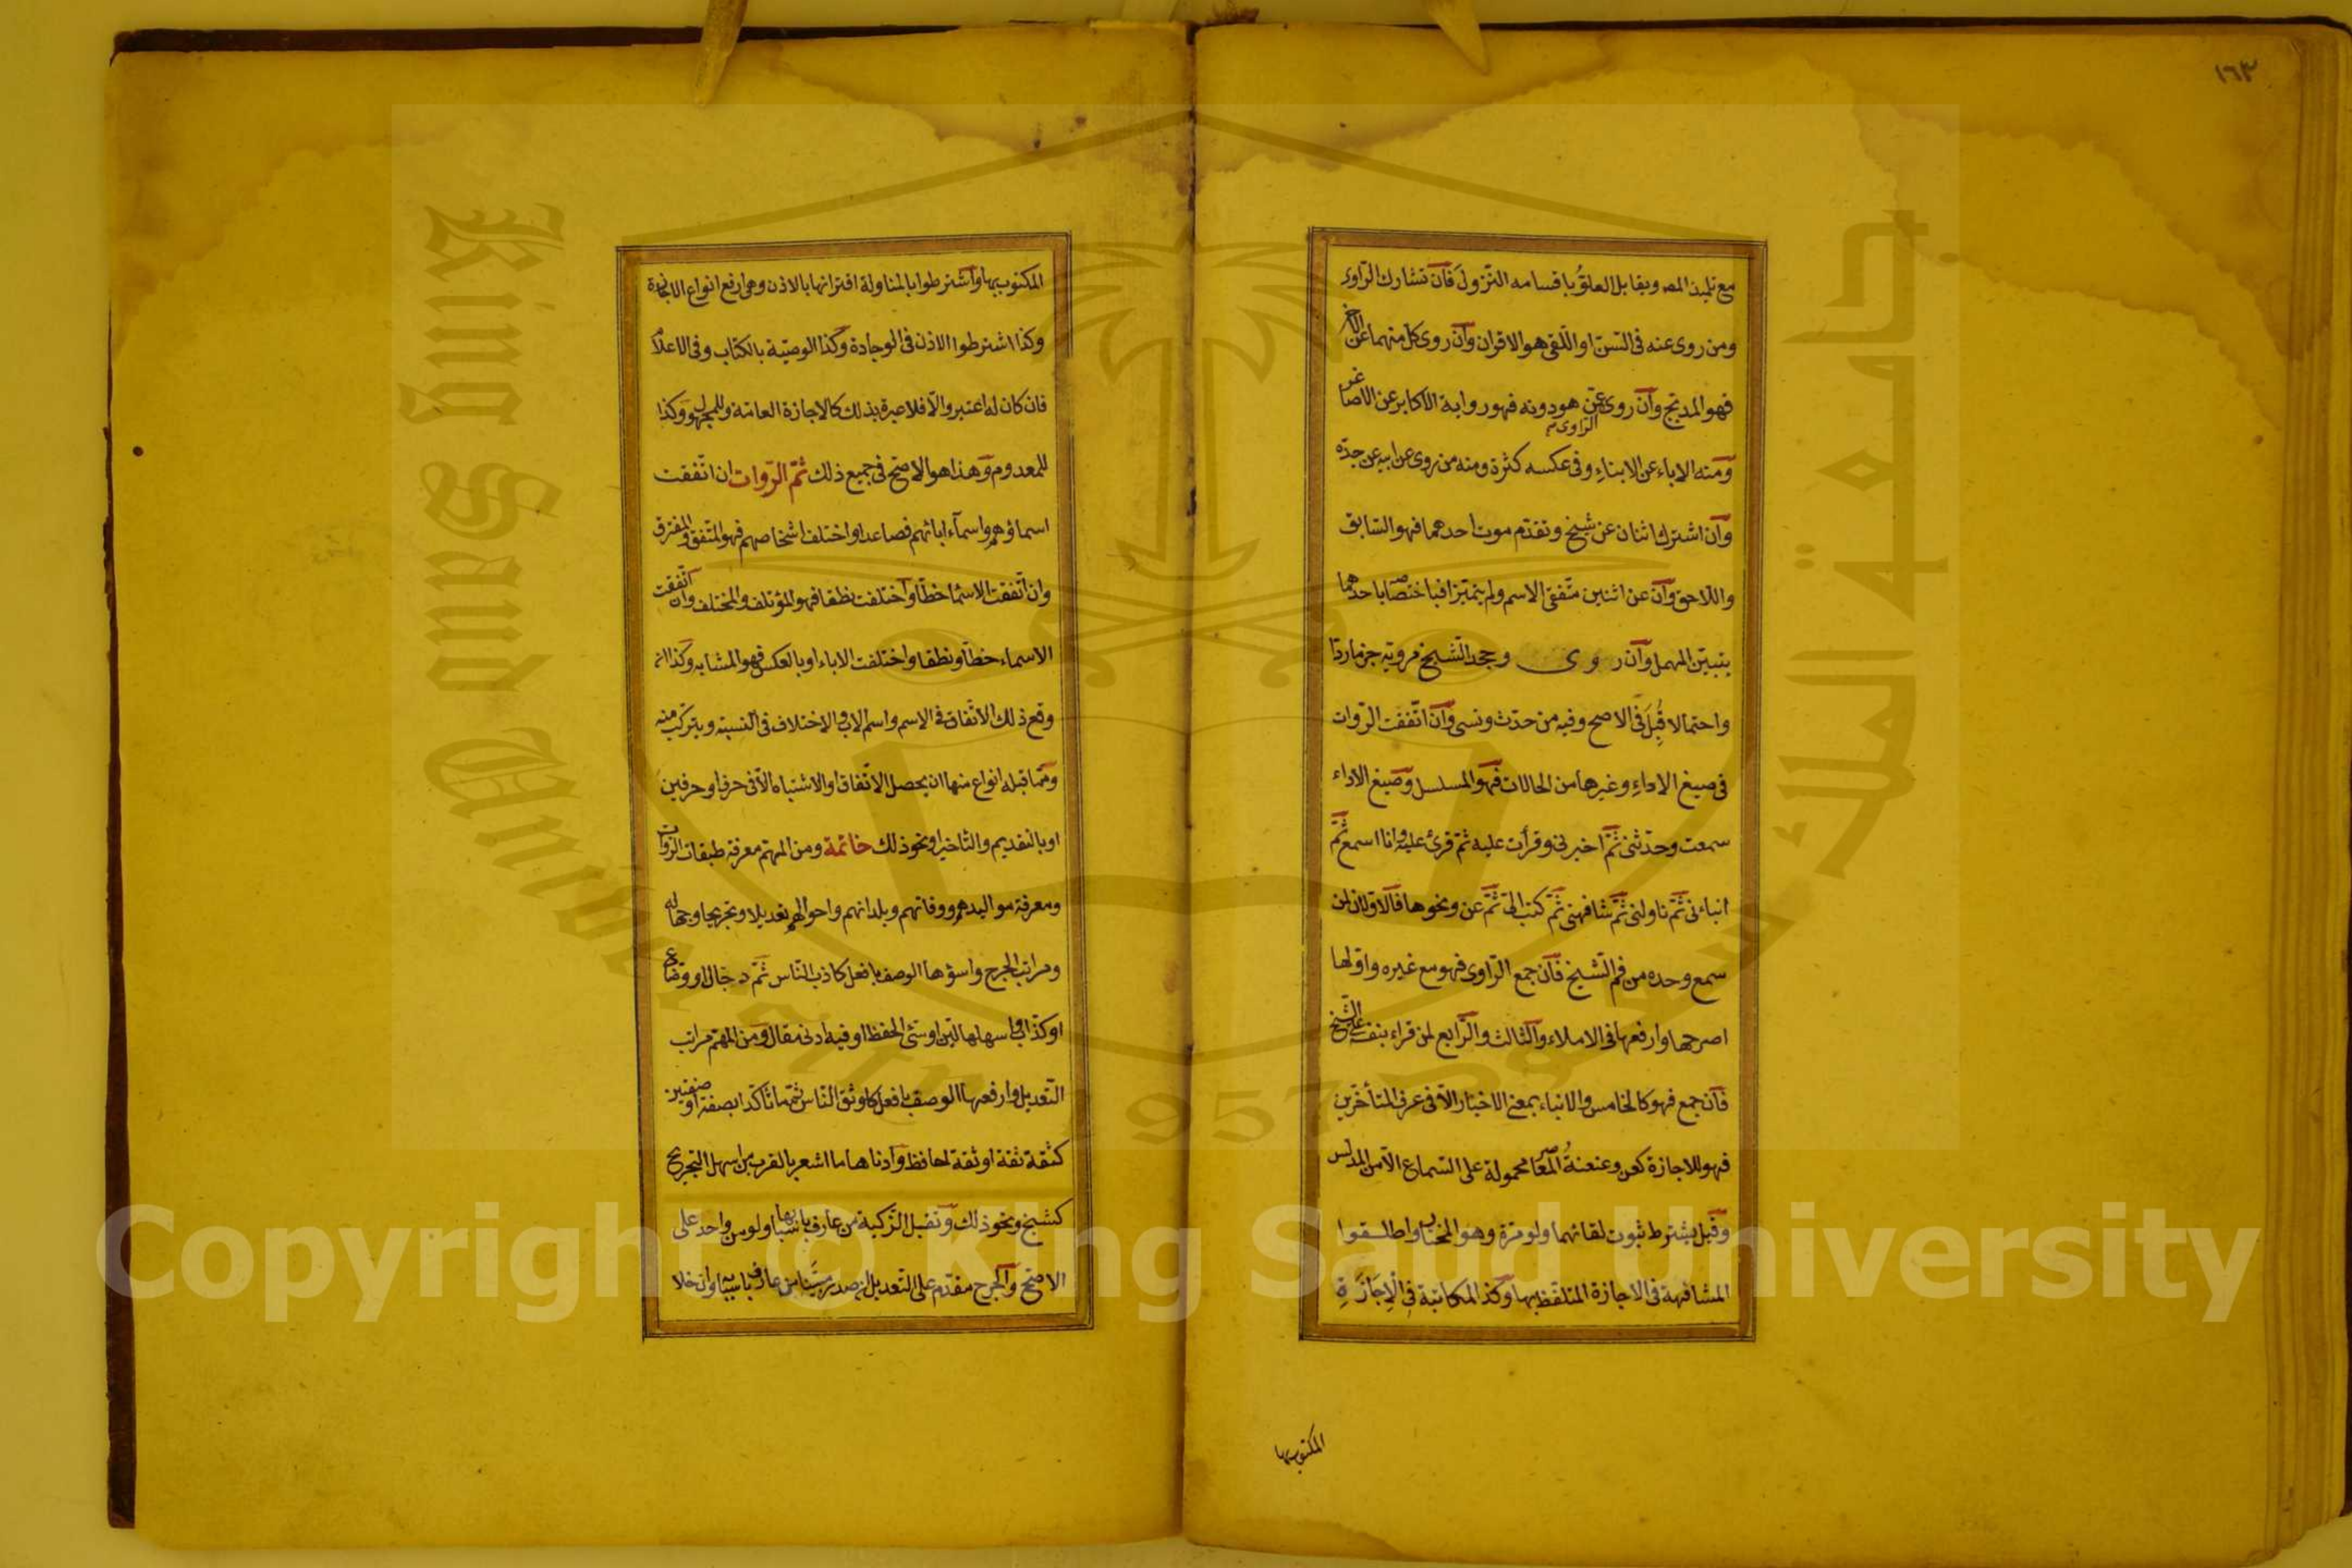 ١٦٣
مع تلميذ المص ويقابل العلوَّ باقسامه النزول فان تشارك الراوى
ومن روى عنه فى السن او اللقى هو الاقران وان روى كل منهما عن الاخر
فهو المدبج وان روى الراوى عن هو دونه فهو رواية الاكابر عن الاصاغر
ومنه الاباء عن الابناء وفى عكسه كثرة ومنه من روى عن ابيه عن جده
وان اشترك اثنان عن شيخ وتقدم موت احدهما فهو السابق
واللاحق وان عن اثنين متفقى الاسم ولم يتميزا فباختصاصه باحدهما
يتبين المهمل وان روى وجحد الشيخ مرويه جزما ردا
واحتمالا قُبِلَ فى الاصح وفيه من حدث ونسى وان اتفقت الروات
فى صيغ الاداء وغيرها من الحالات فهو المسلسل وصيغ الاداء
سمعت وحدثنى ثم اخبرنى وقرأت عليه ثم قرئ عليه وانا اسمع ثم
انباءنى ثم ناولنى ثم شافهنى ثم كتب الى ثم عن ونحوها فالاولان لمن
سمع وحده من فم الشيخ فان جمع الراوى فهو مع غيره واولها
اصرحها وارفعها فى الاملاء والثالث والرابع لمن قراء بنفسه على الشيخ
فان جمع فهو كالخامس والانباء بمعنى الاخبار الا فى عرف المتأخرين
فهو للاجازة كعن وعنعنةُ المعاصر محمولة على السماع الا من المدلس
وقيل يشترط ثبوت لقائهما ولو مرة وهو المختار واطلقوا
المشافهة فى الاجازة المتلفظ بها وكذ المكاتبة فى الْاِجَازَةِ
المكتوب بها
المكتوب بها واشترطوا بالمناولة اقترانها بالاذن وهى ارفع انواع الاجازة
وكذا اشترطوا الاذن فى الوجادة وكذا الوصية بالكتاب وفى الاعلام
فان كان له اعتبر والا فلا عبرة بذلك كالاجازة العامة وللمجهول وكذا
للمعدوم وهذا هو الاصح فى جميع ذلك ثم الروات ان اتفقت
اسماؤهم واسماء ابائهم فصاعدا واختلف اشخاصهم فهو المتفق والمفترق
وان اتفقت الاسما خطا واختلفت نطقا فهو المؤتلف والمختلف وان اتفقت
الاسماء خطا ونطقا واختلفت الاباء او بالعكس فهو المشابه وكذا ان
وقع ذلك الاتفاق فى الاسم واسم الاب والاختلاف فى النسبة ويتركب منه
ومما قبله انواع منها ان يحصل الاتفاق او الاشتباه الا فى حرف او حرفين
او بالتقديم والتاخير او نحو ذلك خاتمة ومن المهم معرفة طبقات الروات
ومعرفة مواليدهم ووفاتهم وبلدانهم واحوالهم تعديلا وتجريحا وجهاله
ومراتب الجرح واسؤها الوصف بافعل كاذب الناس ثم دجال او وضاع
او كذاب واسهلها لين او سئ الحفظ او فيه ادنى مقال ومن المهم مراتب
التعديل وارفعها الوصف بافعل كاوثق الناس ثم ما تاكد بصفة او صفتين
كثقة ثقة او ثقة حافظ وادناها ما اشعر بالقرب من اسهل التجريح
كشيخ ونحو ذلك وتقبل التزكية من عارف باسبابها ولو من واحد على
الاصح والجرح مقدم على التعديل ان صدر مبينا من عارف باسبابه وان خلا